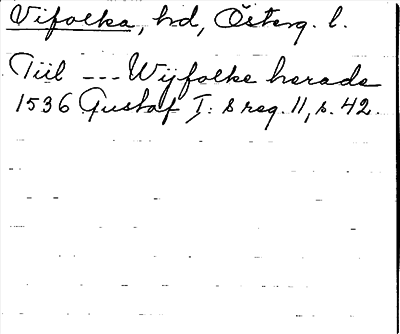 Vifolka, hd, Österg. l.
Tiil --- Wijfolke herade
1536 Gustaf I: s reg. 11, s. 42.